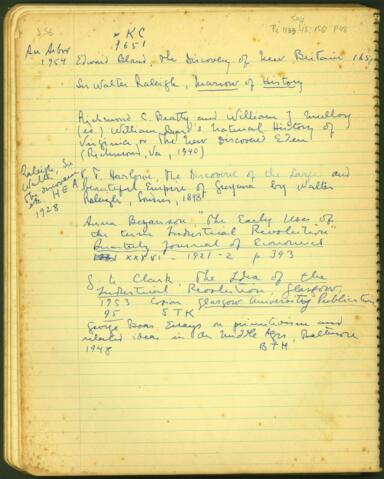 * KC
9651
An Arbor
1954 Edward Bland, The Discovery of New Britain 1651
Sir Walter Raleigh, Marrow of History
Richmond C. Beatty and William J. Mulloy
(ed.) William Byrd's Natural History of
Virginia or The New Discovered Eden
(Richmond, Va, 1940)
Raleigh, Sir
Walter
The Discoverie
etc HEA
1928
V. T. Harlow, The Discoverie of the Large and
Beautiful Empire of Guyana by Walter
Raleigh, London, 1928
Anna Bezanson "The Early Use of
the term Industrial Revolution"
Quarterly Journal of Economics
XXXVI - 1921-2 p 343
G. N. Clark, The Idea of the
Industrial Revolution, Glasgow,
1953 Glasgow University Publication
95 STK
George Boas. Essays on primitivism and
related ideas in the Middle Ages, Baltimore
1948 BFH